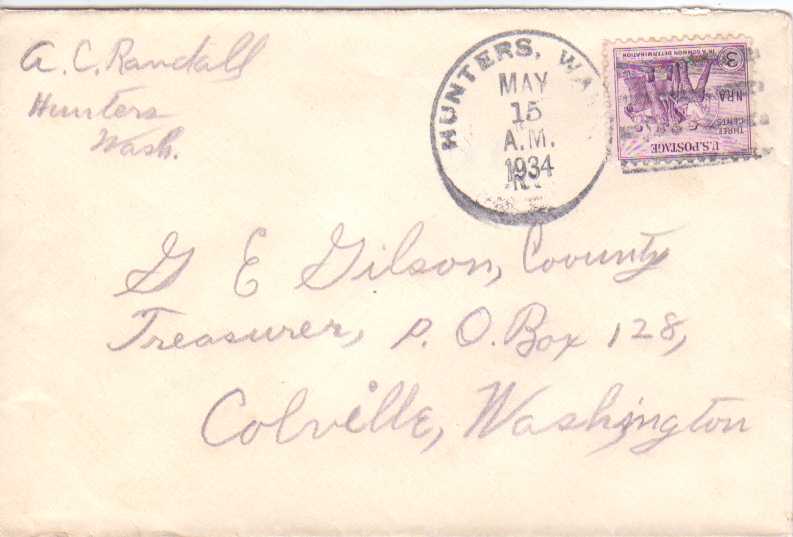 A. C. Randall
Hunters
Wash.
HUNTERS, WA
MAY
15
A.M.
1934
3
IN A COMMON DETERMINATION
NRA
THREE
CENTS
U.S. POSTAGE
G E Gilson, Coounty
Treasurer, P. O. Box 128,
Colville, Washington